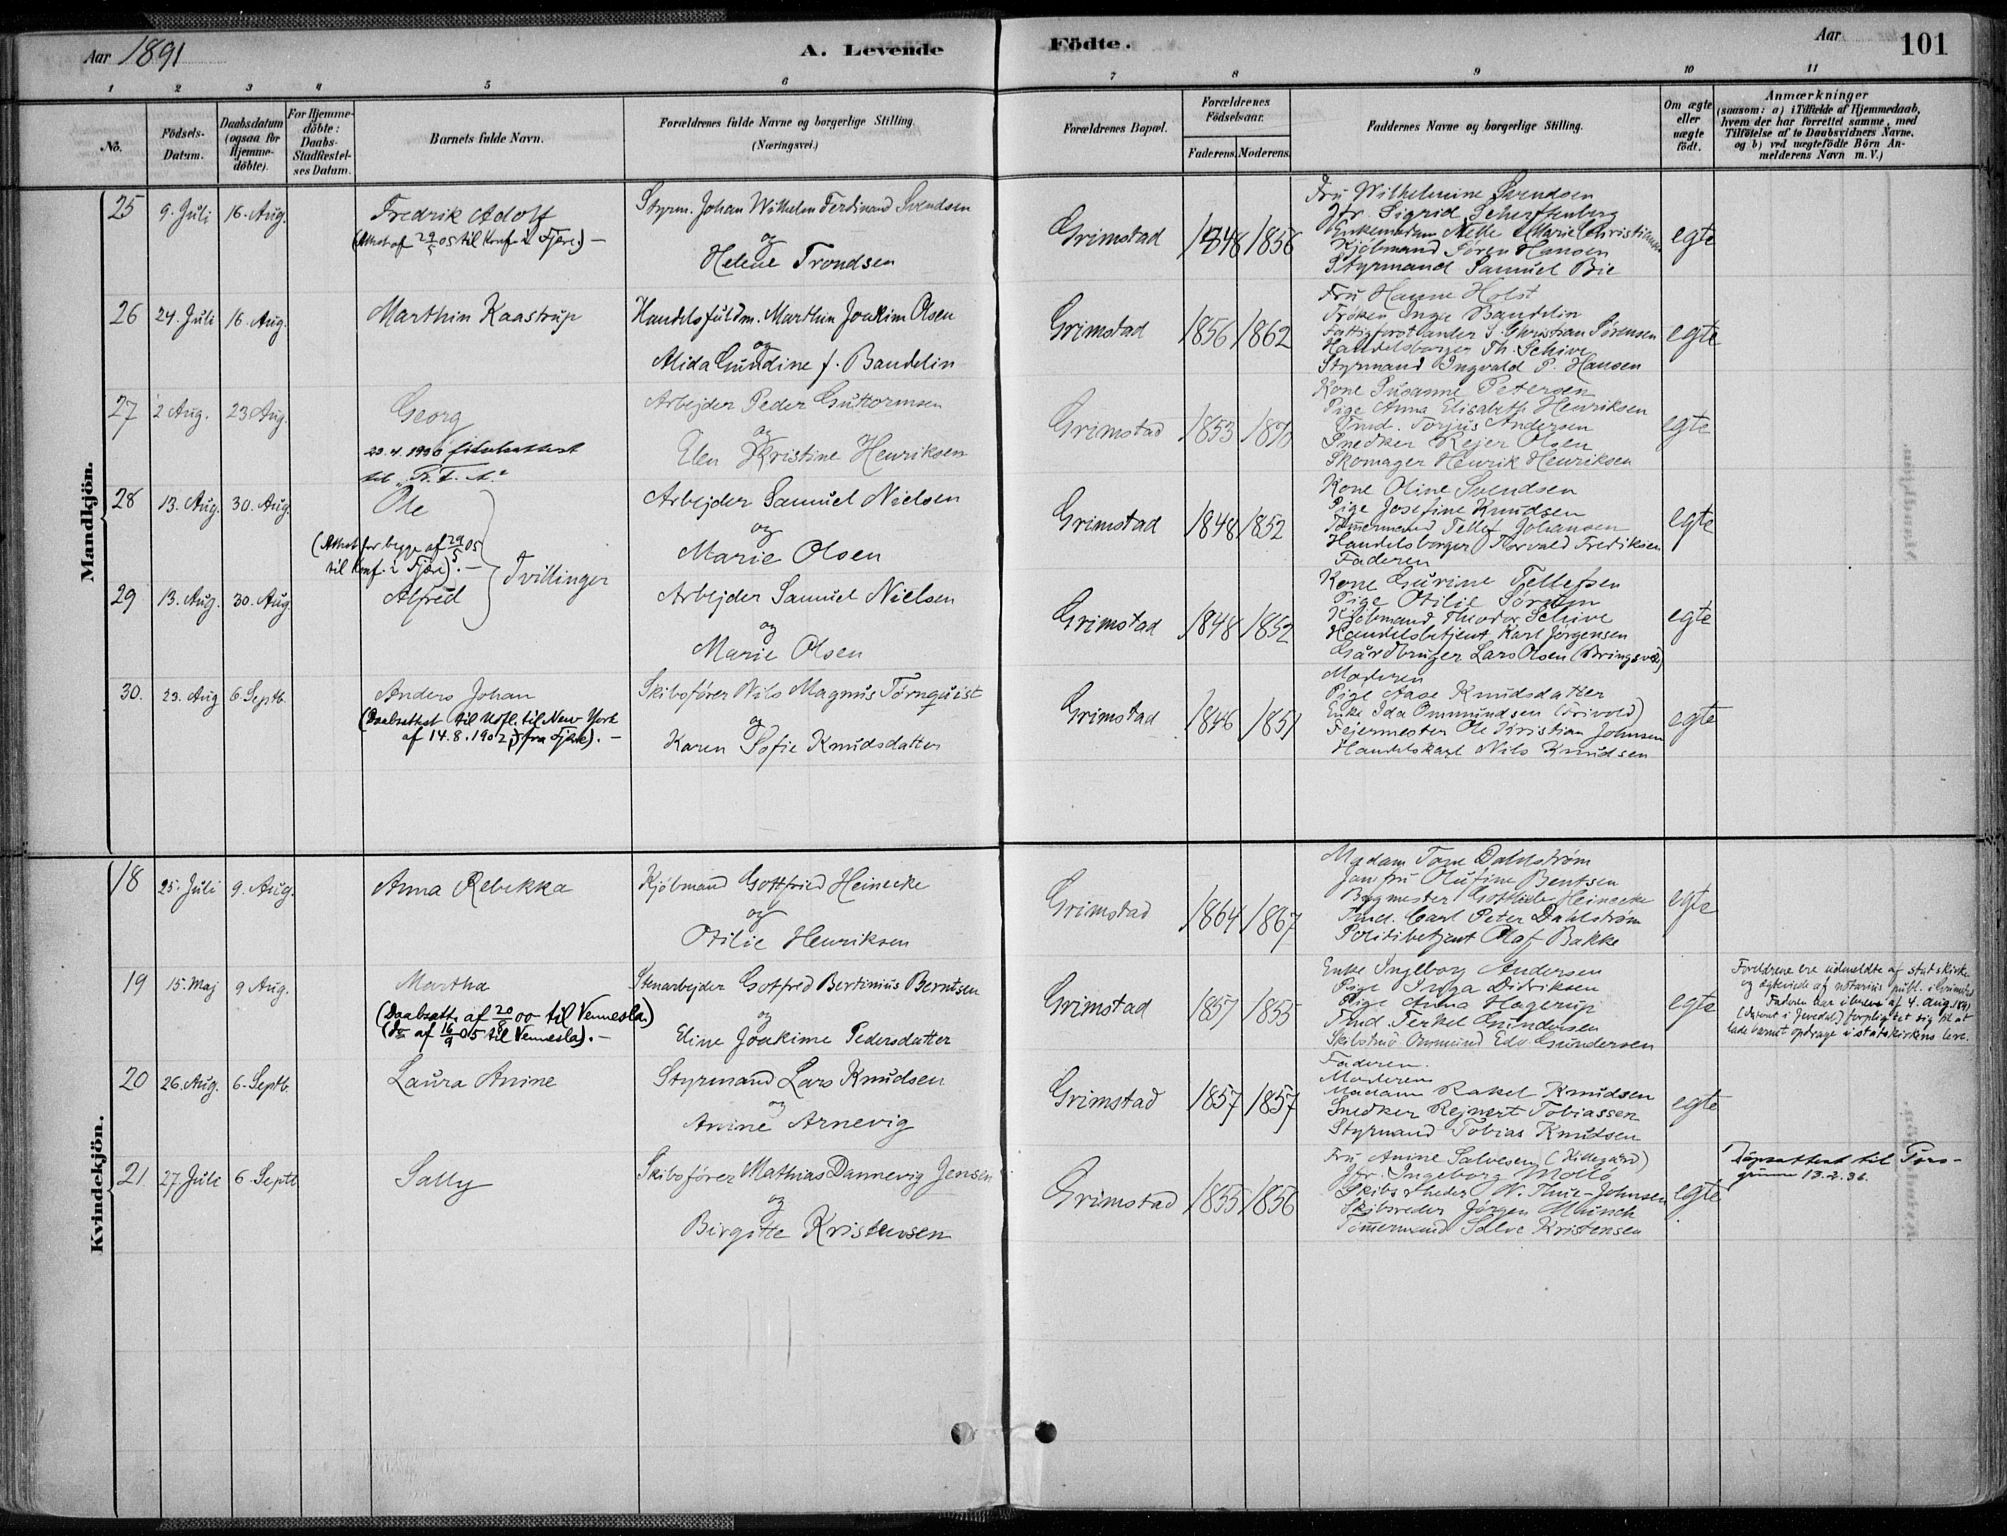 Aar 1891
A. Levende
Födte.
Aar
101
1 2 3 4 5 6 7 8 9 10 11
No.
Födsels-Datum.
Daabsdatum (ogsaa for Hjemme-döbte).
For Hjemme-döbte: Daabs-Stadfæstel-ses Datum.
Barnets fulde Navn.
Forældrenes fulde Navne og borgerlige Stilling. (Næringsvei.)
Forældrenes Bopæl.
Forældrenes Födselsaar.
Faderens. Moderens.
Faddernes Navne og borgerlige Stilling.
Om ægte eller uægte födt.
Anmærkninger
(saasom: a) i Tilfælde af Hjemmedaab,
hvem der har forrettet samme, med
Tilföielse af to Daabsvidners Navne.
og b) ved uægtefödte Börn An-
melderens Navn m. V.)
Mandkjön.
25 9. Juli 16. Aug.
Fredrik Adolf
(Attest af 29/5 05 til Konf. i Fjære.) —
Styrm. Johan Wilhelm Ferdinand Svendsen
og
Helene Trondsen
Grimstad 1848 1856
Fru Wilhelmine Svendsen
Jfr. Sigrid Scherffenberg
Enkemadam Mette Marie Christiansen
Kjöbmand Sören Hansen
Styrmand Samuel Bie
egte
26 24. Juli 16. Aug.
Marthin Kaastrup
Handelsfuldm. Marthin Joakim Olsen
og
Alida Gundine f. Bandelin
Grimstad 1856 1862
Fru Hanne Holst
Fröken Inga Bandelin
Fattigforstander S. Christian Sörensen
Handelsborger Th. Schive
Styrmand Ingvald P. Hansen
egte
27 2 Aug. 23 Aug.
Georg
23.4.1936
Arbejder Peder Guttormsen
og
Elen Kristine Henriksen
Grimstad 1853 1870
Kone Susanne Petersen
Pige Anna Elisabeth Henriksen
Tmd. Torjus Andersen
Snedker Rejer Olsen
Skomager Henrik Henriksen
egte
28 13. Aug. 30. Aug.
Ole
(Attest for begge af 29/5 05
til Konf. i Fjære). —
Tvillinger
Arbejder Samuel Nielsen
og
Marie Olsen
Grimstad 1848 1852
Kone Oline Svendsen
Pige Josefine Knudsen
Tömmermand Tellef Johansen
Handelsborger Torvald Fredriksen
Faderen
egte
29 13. Aug. 30. Aug
Alfred
Arbejder Samuel Nielsen
og
Marie Olsen
Grimstad 1848 1852
Kone Gurine Tellefsen
Pige Otilie Sörensen
Kjöbmand Theodor Schive
Handelsbetjent Karl Jörgensen
Gårdbruger Lars Olsen (Bringsvær)
egte
30. 23. Aug 6 Septb.
Anders Johan
(Daabsattest til Udfl. til New York
af 14.8.1902 fra Fjære). —
Skibsförer Nils Magnus Törnquist
og
Karen Sofie Knudsdatter
Grimstad 1846 1851
Moderen
Pige Aase Knudsdatter
Enke Ida Ommundsen (Frivold)
Fejermester Ole Kristian Johnsen
Handelskarl Nils Knudsen
egte
Kvindekjön.
18 25. Juli 9. Aug.
Anna Rebekka
Kjöbmand Gottfried Heinecke
og
Otilie Henriksen
Grimstad 1864 1867
Madam Tone Dahlström
Jomfru Olufine Bentsen
Bygmester Gottlieb Heinecke
Tmd. Carl Peter Dahlström
Politibetjent Olaf Bakke
egte
19 15. Maj 9 Aug.
Martha
(Daabsatt. af 20/8 00 til Vennesla.)
(Do af 16/9 05 til Vennesla). —
Stenarbejder Gotfred Bertinius Berntsen
og
Eline Joakime Pedersdatter
Grimstad 1857 1855
Enke Ingeborg Andersen
Pige Inga Didriksen
Pige Anna Hagerup
Tmd. Terkel Gundersen
Ommund Edv. Gundersen
egte
Foreldrene ere udmeldte af statskirken
og egteviede af notarius publ. i Grimstad
Faderen har i brev af 4. Aug. 1891
forpligtet sig til at
lade barnet opdrage i statskirkens lere.
20 26. Aug. 6. Septb.
Laura Anine
Styrmand Lars Knudsen
og
Anine Arnevig
Grimstad 1857 1857
Faderen.
Moderen
Madam Rakel Knudsen
Snedker Rejnert Tobiassen
Styrmand Tobias Knudsen
egte
21. 27. Jule 6 Septb
Sally
Skibsförer Mathias Dannevig Jensen
og
Birgitte Kristensen
Grimstad 1855 1856
Fru Anine Salvesen (Hillegård)
Jfr. Ingeborg
Skibsrheder N. Thue-Johnsen
Skibsreder Jörgen Munch
Tömmermand Salve Kristensen
egte
Dåpsattest til Pors-
grunn 13.2.36.